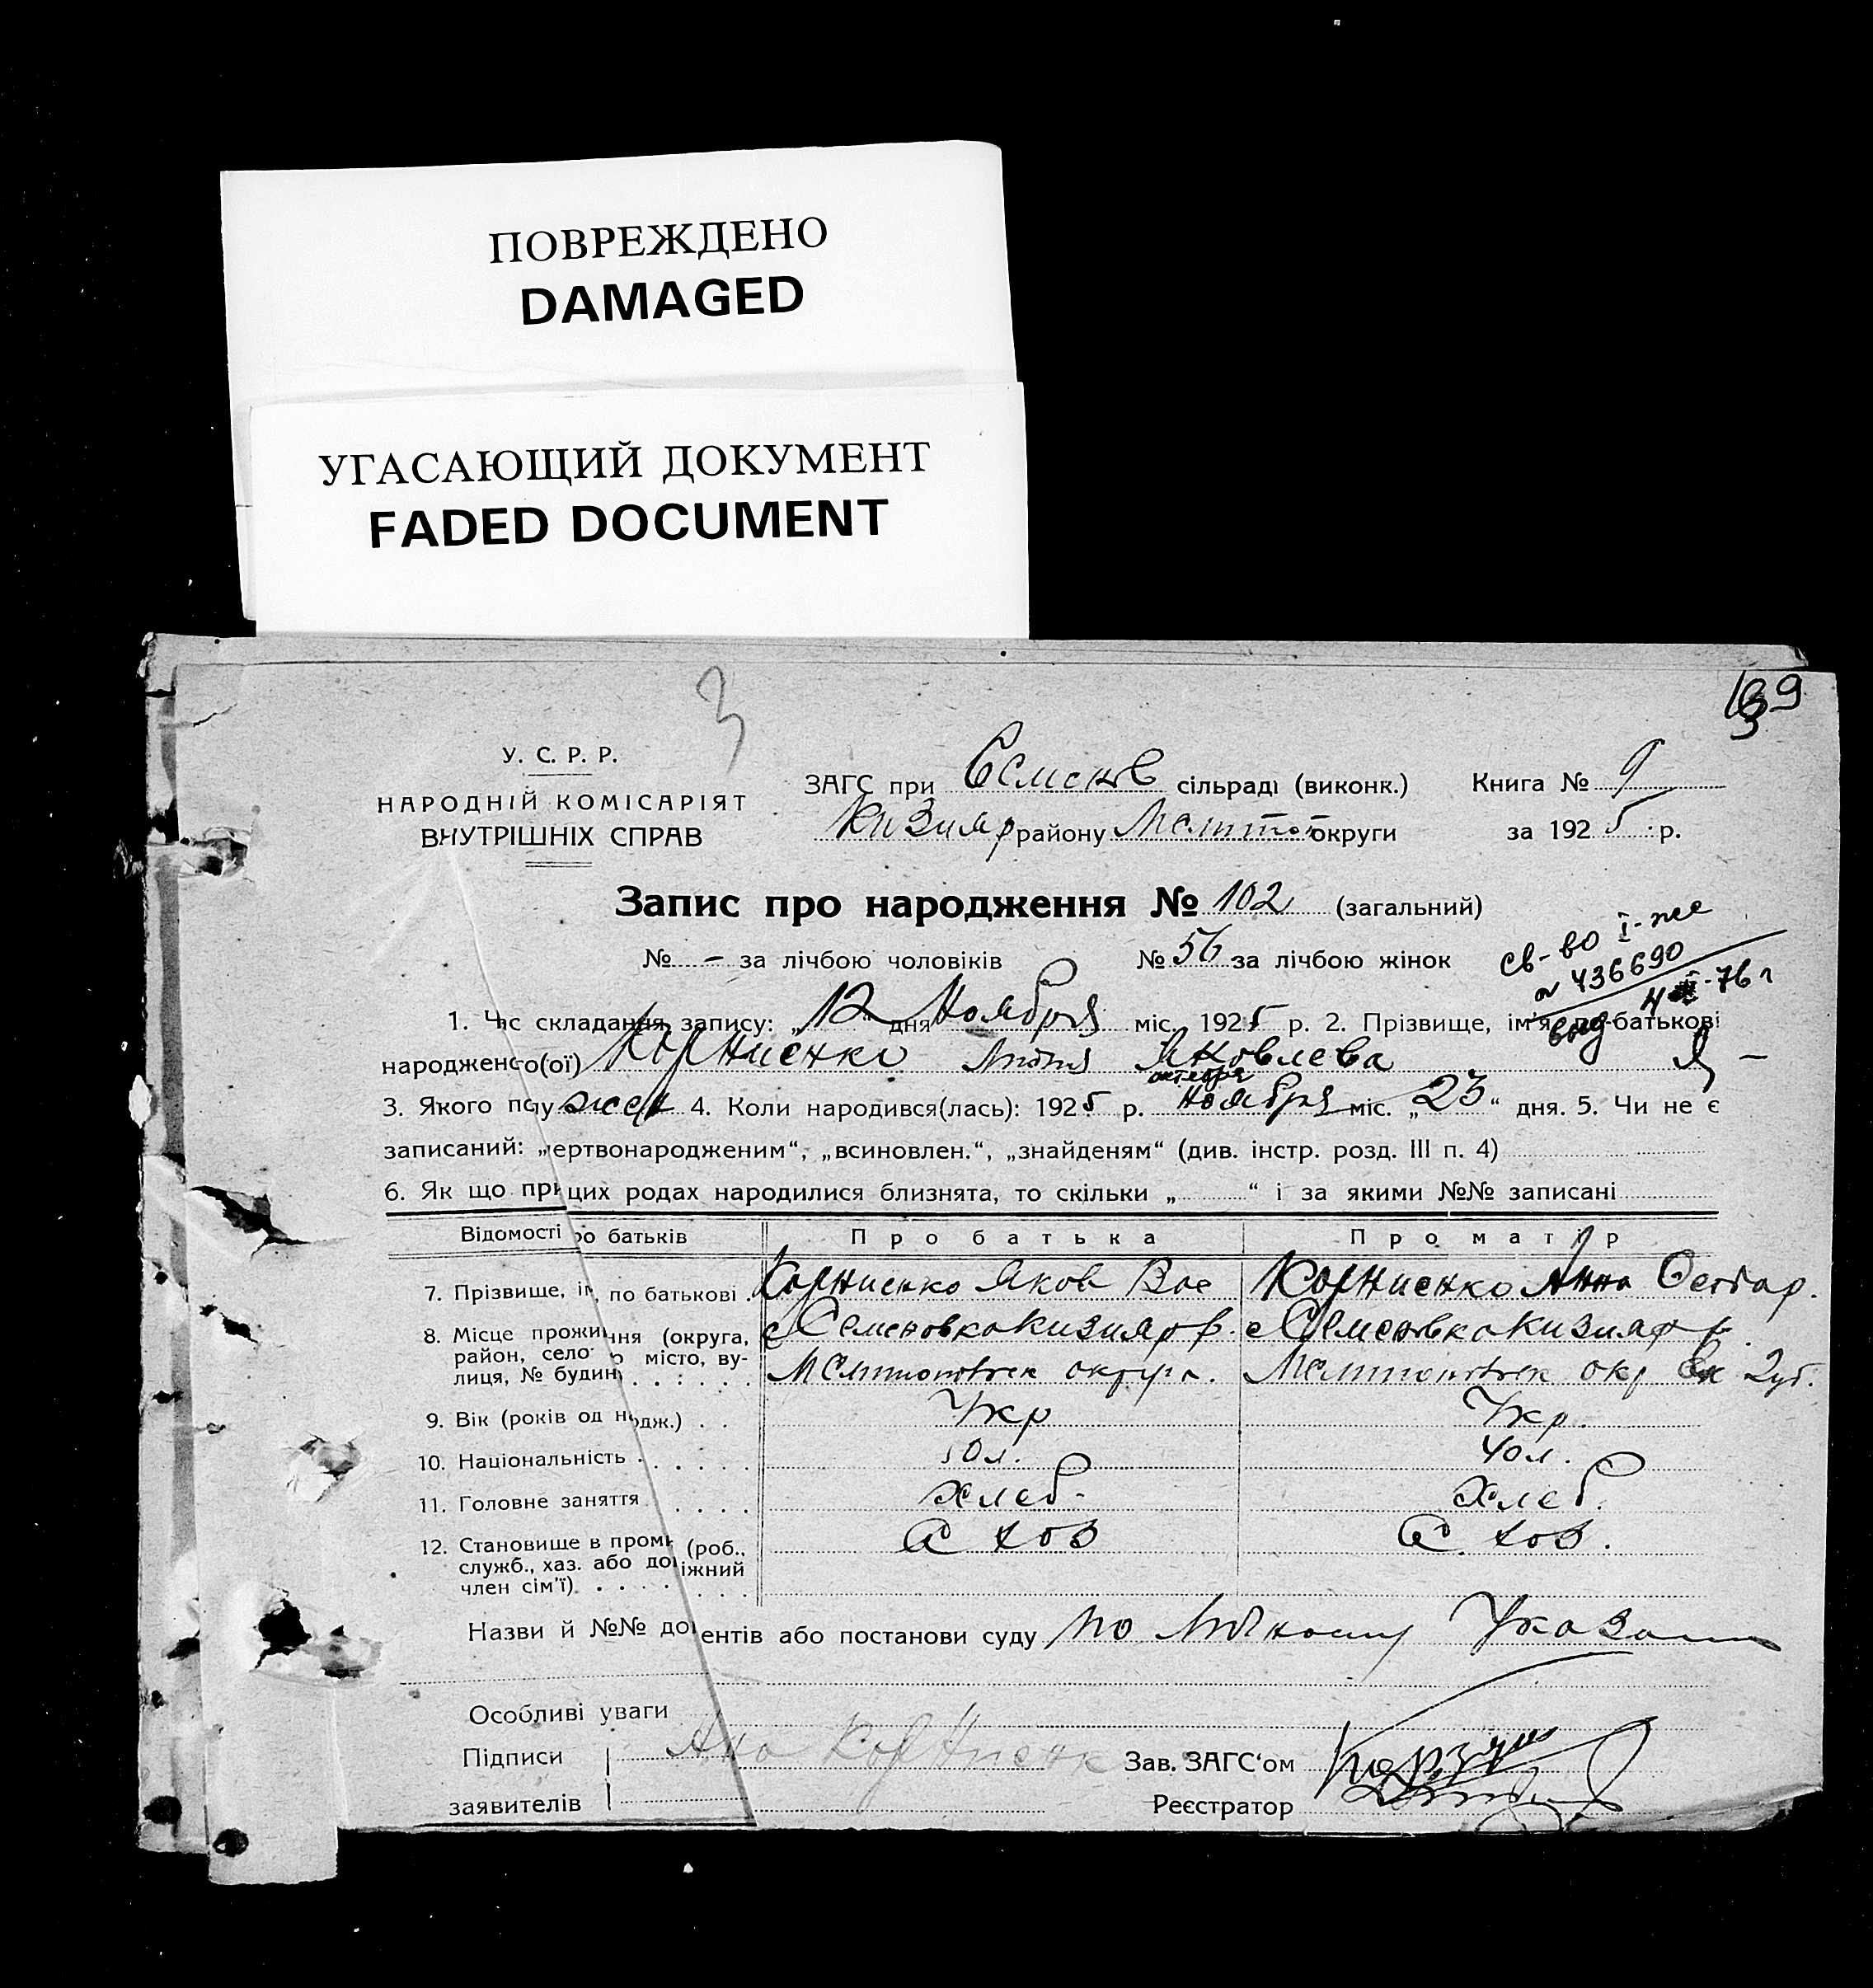 ПОВРЕЖДЕНО
DAMAGED
УГАСАЮЩИЙ ДОКУМЕНТ
FADED DOCUMENT
3
У. С. Р. Р.
НАРОДНІЙ КОМІСАРІЯТ
ВНУТРІШНІХ СПРАВ
ЗАГС при Семенов сільраді (виконк.) Книга № 9
Кизияр району Мелитоп округи за 1925 р.
Запис про народження № 102 (загальний)
№ – за лічбою чоловіків № 56 за лічбою жінок
св-во I-же
№ 436690
76 г
1. Час складання запису: „12“ дня Ноября міс. 1925 р. 2. Прізвище, ім'я, по-батькові
народженого(ої) Корниенко Яковлева
октября
3. Якого полу жен 4. Коли народився(лась): 1925 р. Ноября міс. „23“ дня. 5. Чи не є
записаний: „ертвонародженим“, „всиновлен.“, „знайденям“ (див. інстр. розд. III п. 4)
6. Як що при цих родах народилися близнята, то скільки „ “ і за якими №№ записані
Відомості ро батьків Про батька Про матір
7. Прізвище, ім по батькові . Корниенко Яков Вас Корниенко Анна Остар.
8. Місце прожиння (округа, с Семеновка Кизияр р. с Семеновка Кизияр р
район, село о місто, ву-
лиця, № будин . . . . . Мелитопольск округа. Мелитопольск окр
9. Вік (років од нодж.) . . Укр Укр.
10. Національність . . . . . 50 л. 40 л.
11. Головне заняття . . . . Хлеб. Хлеб.
12. Становище в пром (роб.,
служб., хаз. або до іжний
член сім'ї) . . . . . .
Назви й №№ до ентів або постанови суду по
Особливі уваги
Підписи Ана Корниенк Зав. ЗАГС'ом
заявителів Реєстратор